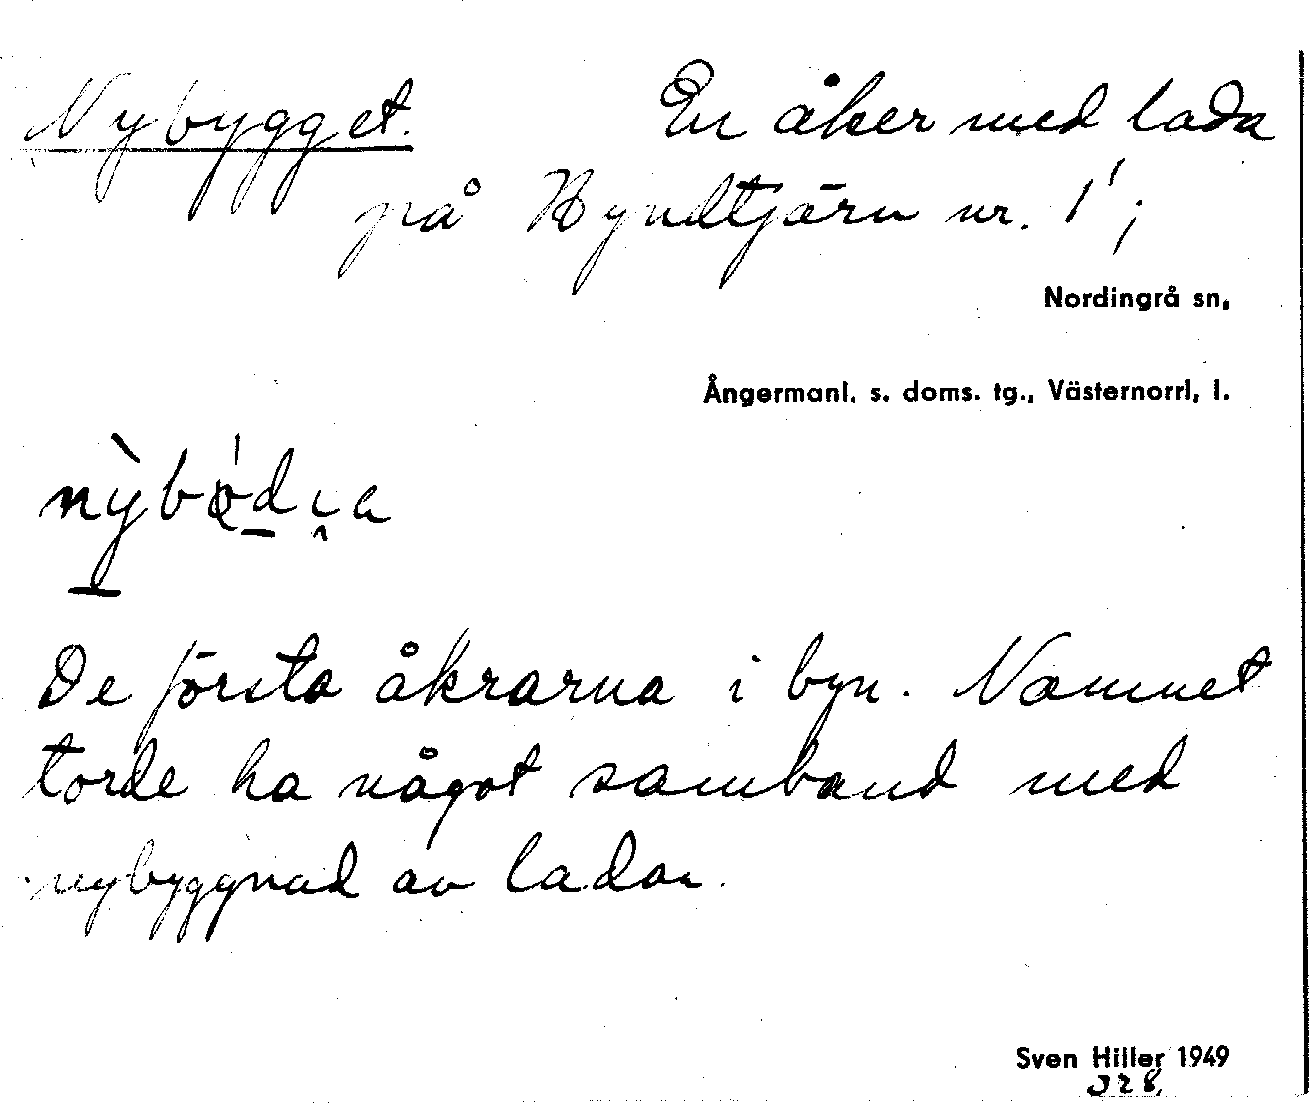 Nybygget. En åker med lada
på Kyndtjärn nr. 1';
Nordingrå sn,
Ångermanl. s. doms. tg., Västernorrl, l.
De första åkrarna i byn. Namnet
torde ha något samband med
nybyggnad av ladan.
Sven Hiller 1949
328.